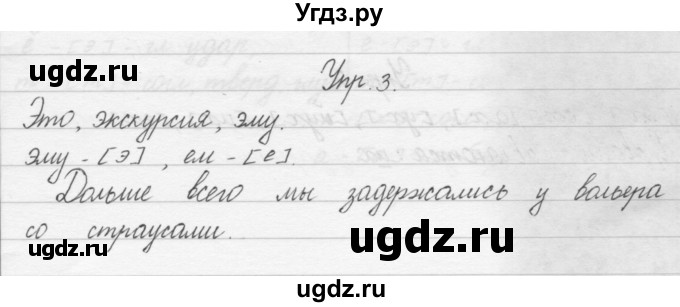 Угдз.ру
ugdz.ru
ugdz.ru
Упр. 3.
Это, экскурсия, эму.
эму - [э] , ем - [е].
ugdz.ru
Дольше всего мы задержались у вольера
со страусами.
ugdz.ru
ugdz.ru
ugdz.ru